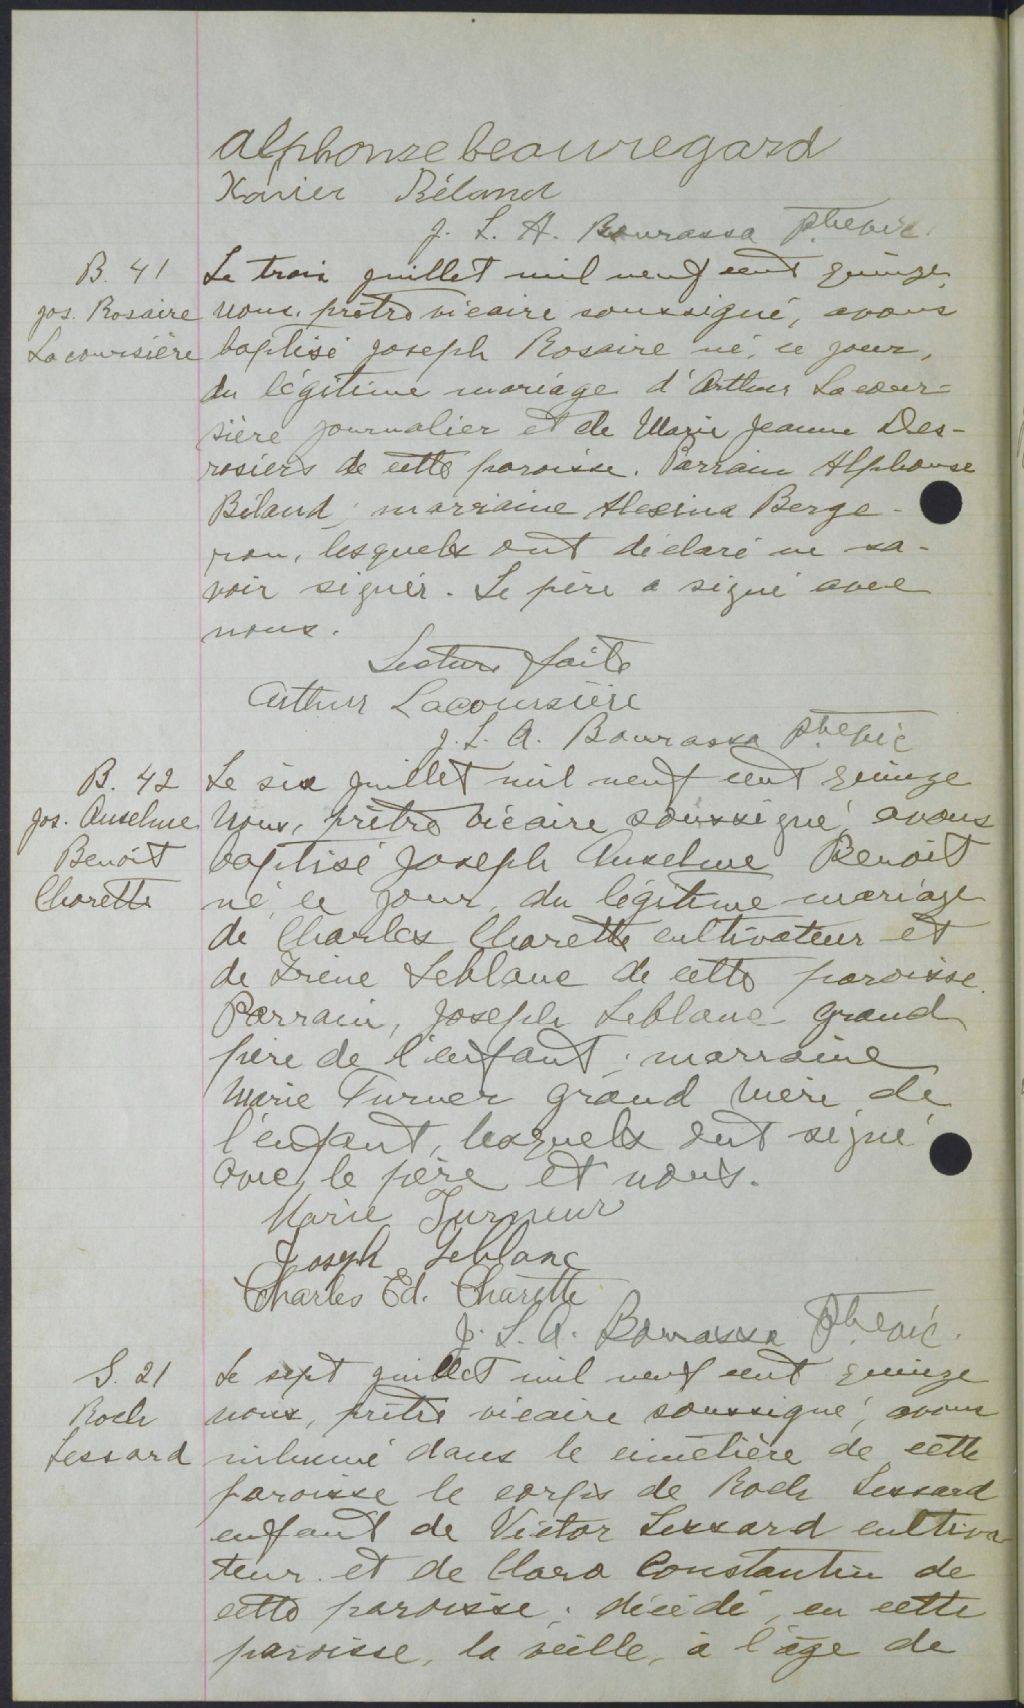 alphonse beauregard
Xavier Béland
J. L. A. Bourassa Ptre vic.
B. 41
Jos. Rosaire
Lacoursière
Le trois juillet mil neuf cent quinze,
nous, prêtre vicaire soussigné, avons
baptisé Joseph Rosaire né, ce jour,
du légitime mariage d'Arthur Lacour=
sière journalier et de Marie Jeanne Des-
rosiers de cette paroisse. Parrain Alphonse
Béland; marraine Alexina Berge-
ron, lesquels ont déclaré ne sa-
voir signer. Le père a signé avec
nous.
Lecture faite
Arthur Lacoursière
J. L. A. Bourassa Ptre vic
B. 42
Jos. Anselme
Benoit
Charette
Le six juillet mil neuf cent quinze
Nous, prêtre vicaire soussigné, avons
baptisé Joseph Anselme Benoit
né, ce jour, du légitime mariage
de Charles Charette cultivateur et
de Irène Leblanc de cette paroisse.
Parrain, Joseph Leblanc grand
père de l'enfant; marraine
Marie Turner grand mère de
l'enfant, lesquels ont signé
avec le père et nous.
Marie Turneur
Joseph Leblanc
Charles Ed. Charette
J. L. A. Bourassa Ptre vic.
S. 21
Roch
Lessard
Le sept juillet mil neuf cent quinze
nous, prêtre vicaire soussigné, avons
inhumé dans le cimetière de cette
paroisse le corps de Roch Lessard
enfant de Victor Lessard cultiva-
teur et de Clara Constantin de
cette paroisse; décédé, en cette
paroisse, la veille, à l'âge de